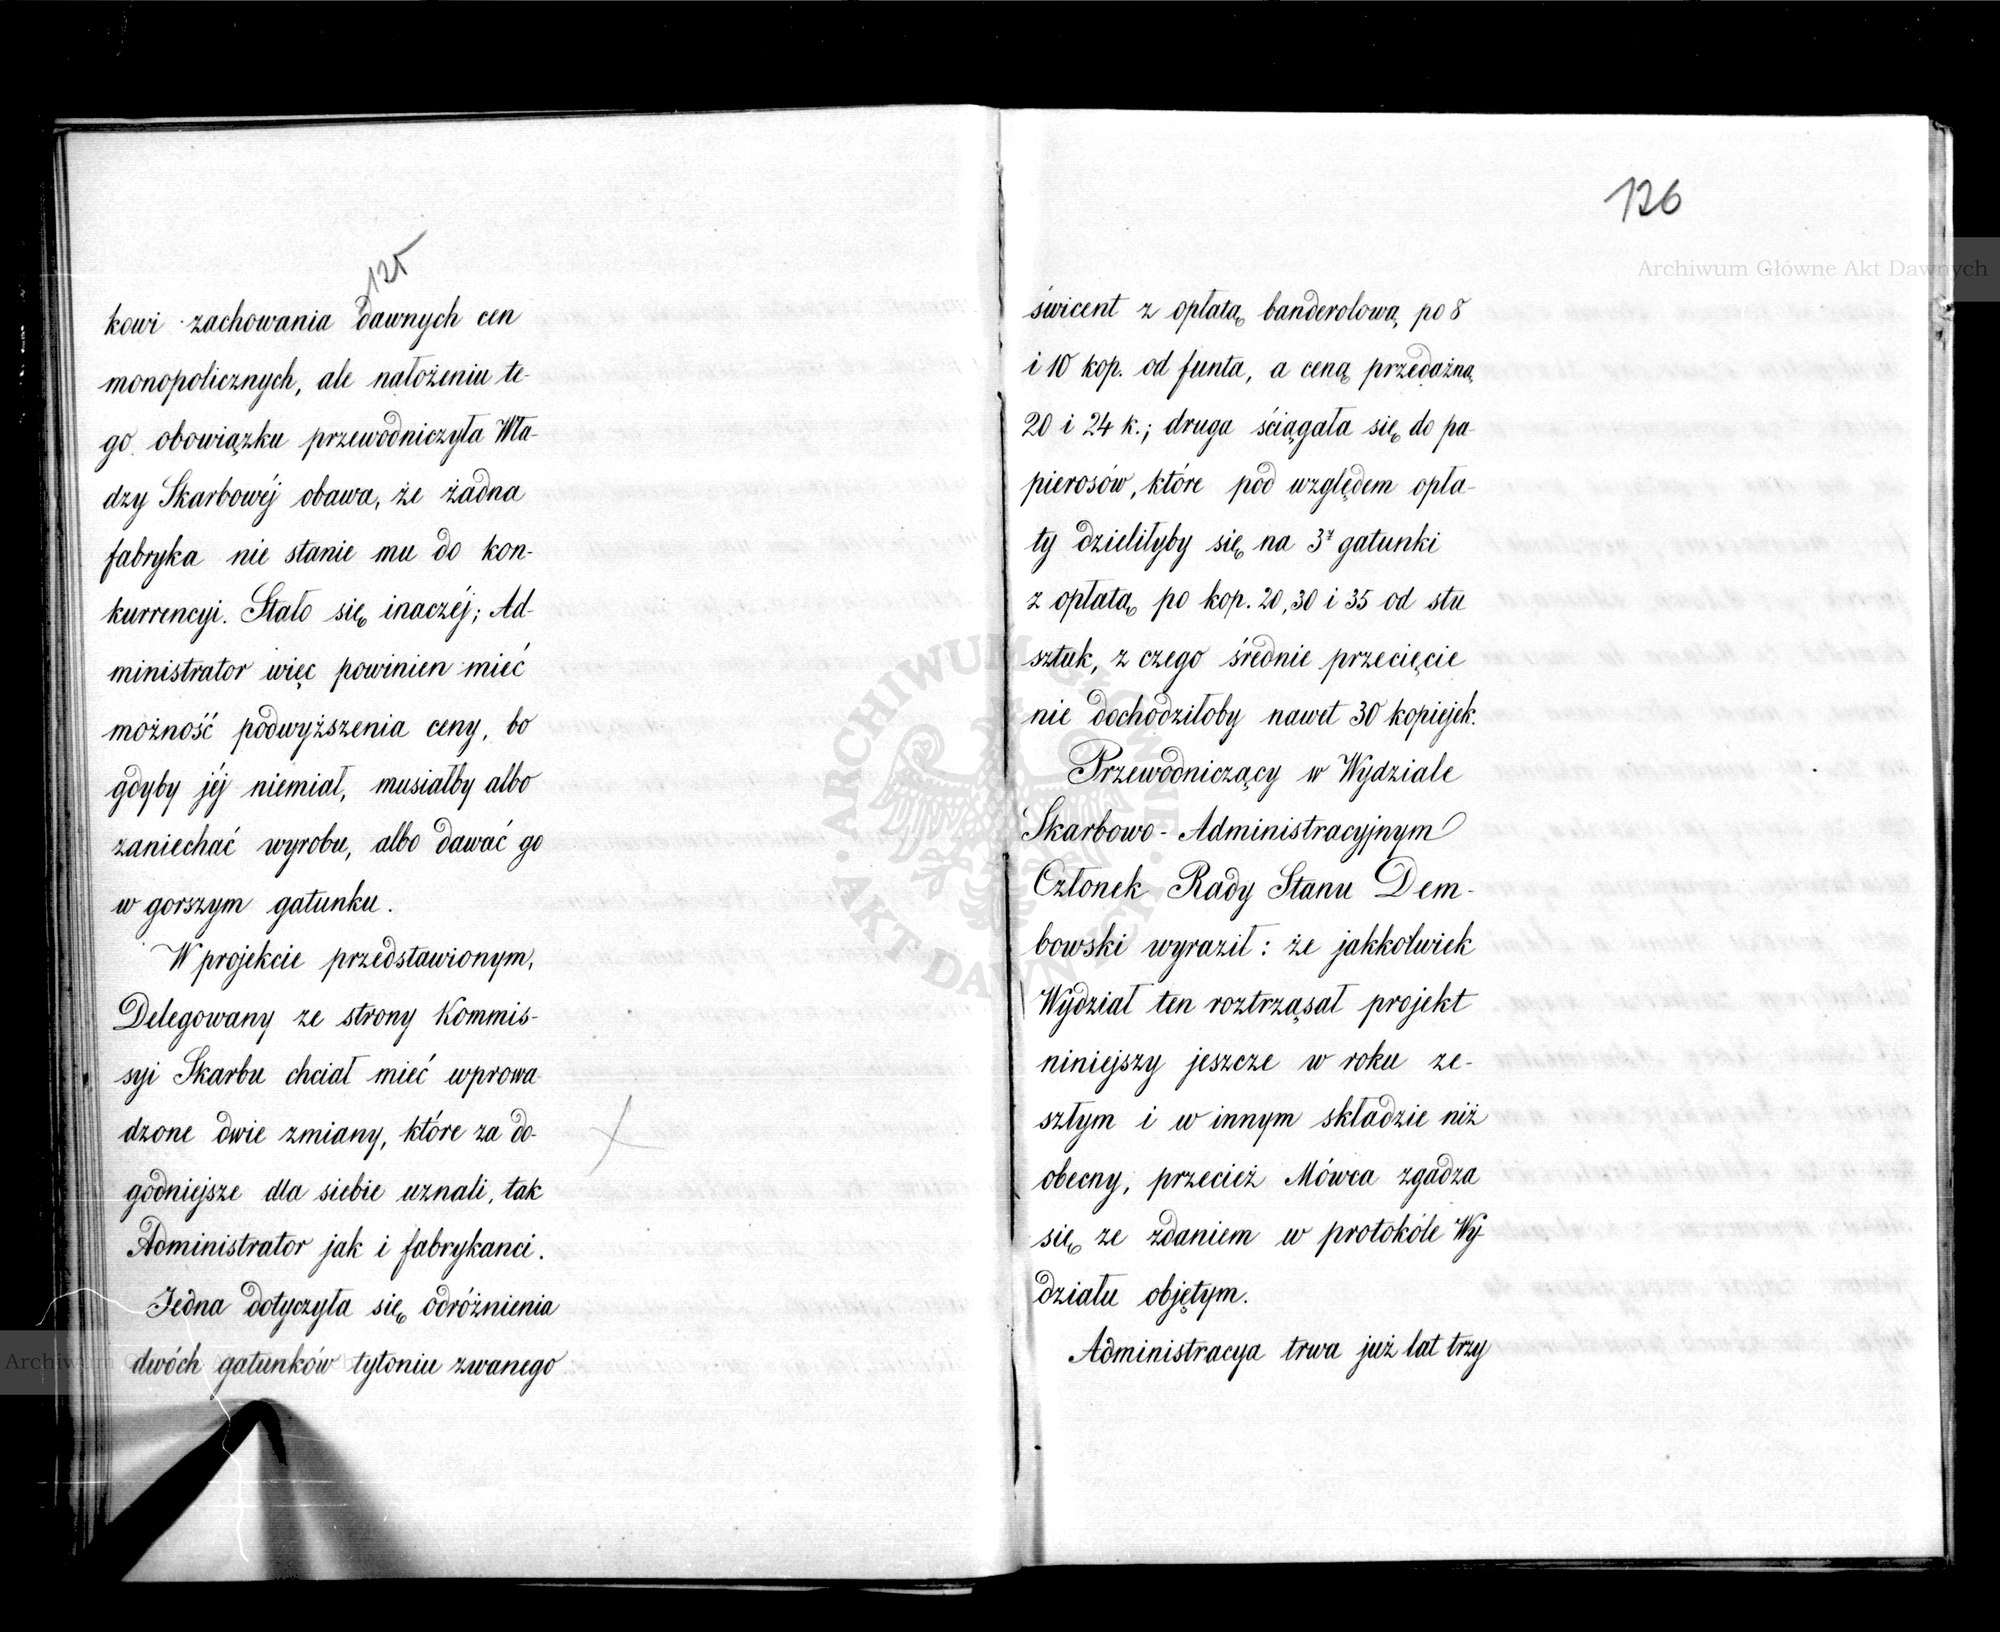 125
kowi zachowania dawnych cen
monopolicznych, ale nałożeniu te-
go obowiązku przewodniczyła Wła-
dzy Skarbowéj obawa, że żadna
fabryka nie stanie mu do kon-
kurrencyi. Stało się inaczéj; Ad-
ministrator więc powinien mieć
możność podwyższenia ceny, bo
gdyby jéj niemiał, musiałby albo
zaniechać wyrobu, albo dawać go
w gorszym gatunku.
W projekcie przedstawionym,
Delegowany ze strony Kommis-
syi Skarbu chciał mieć wprowa-
dzone dwie zmiany, które za do-
godniejsze dla siebie uznali, tak
Administrator jak i fabrykanci.
Jedna dotyczyła się odróżnienia
dwóch gatunków tytoniu zwanego
126
Archiwum Główne Akt Dawnych
świcent z opłatą banderolową po 8
i 10 kop. od funta, a ceną przedażną
20 i 24 k.; druga ściągała się do pa-
pierosów, które pod względem opła-
ty dzieliłyby się na 3y gatunki
z opłatą po kop. 20, 30 i 35 od stu
sztuk, z czego średnie przecięcie
nie dochodziłoby nawet 30 kopiejek.
Przewodniczący w Wydziale
Skarbowo-Administracyjnym
Członek Rady Stanu Dem-
bowski wyraził: że jakkolwiek
Wydział ten roztrząsał projekt
niniejszy jeszcze w roku ze-
szłym i w innym składzie niż
obecny, przecież Mówca zgadza
się ze zdaniem w protokóle Wy-
działu objętym.
Administracya trwa już lat trzy
ARCHIWUM GŁÓWNE AKT DAWNYCH